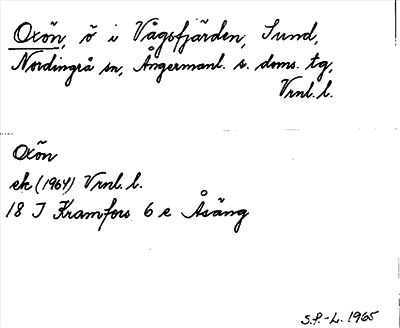 Oxön, ö i Vågsfjärden, Sund,
Nordingrå sn, Ångermanl. s. doms. tg,
Vrnl. l.
Oxön
ek (1964) Vrnl. l.
18 J Kramfors 6 e Åsäng
S.P.-L. 1965